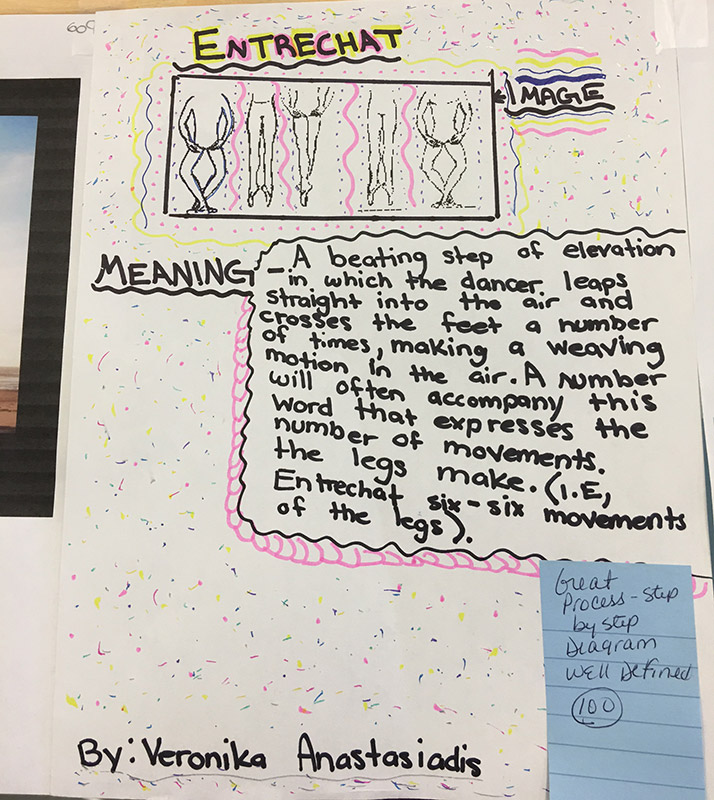 609
ENTRECHAT
IMAGE
MEANING
- A beating step of elevation
in which the dancer leaps
straight into the air and
crosses the feet a number
of times, making a weaving
motion in the air. A number
will often accompany this
word that expresses the
number of movements.
the legs make. (I.E,
Entrechat six-six movements
of the legs).
Great
Process-step
by step
Diagram
Well Defined
100
By: Veronika Anastasiadis